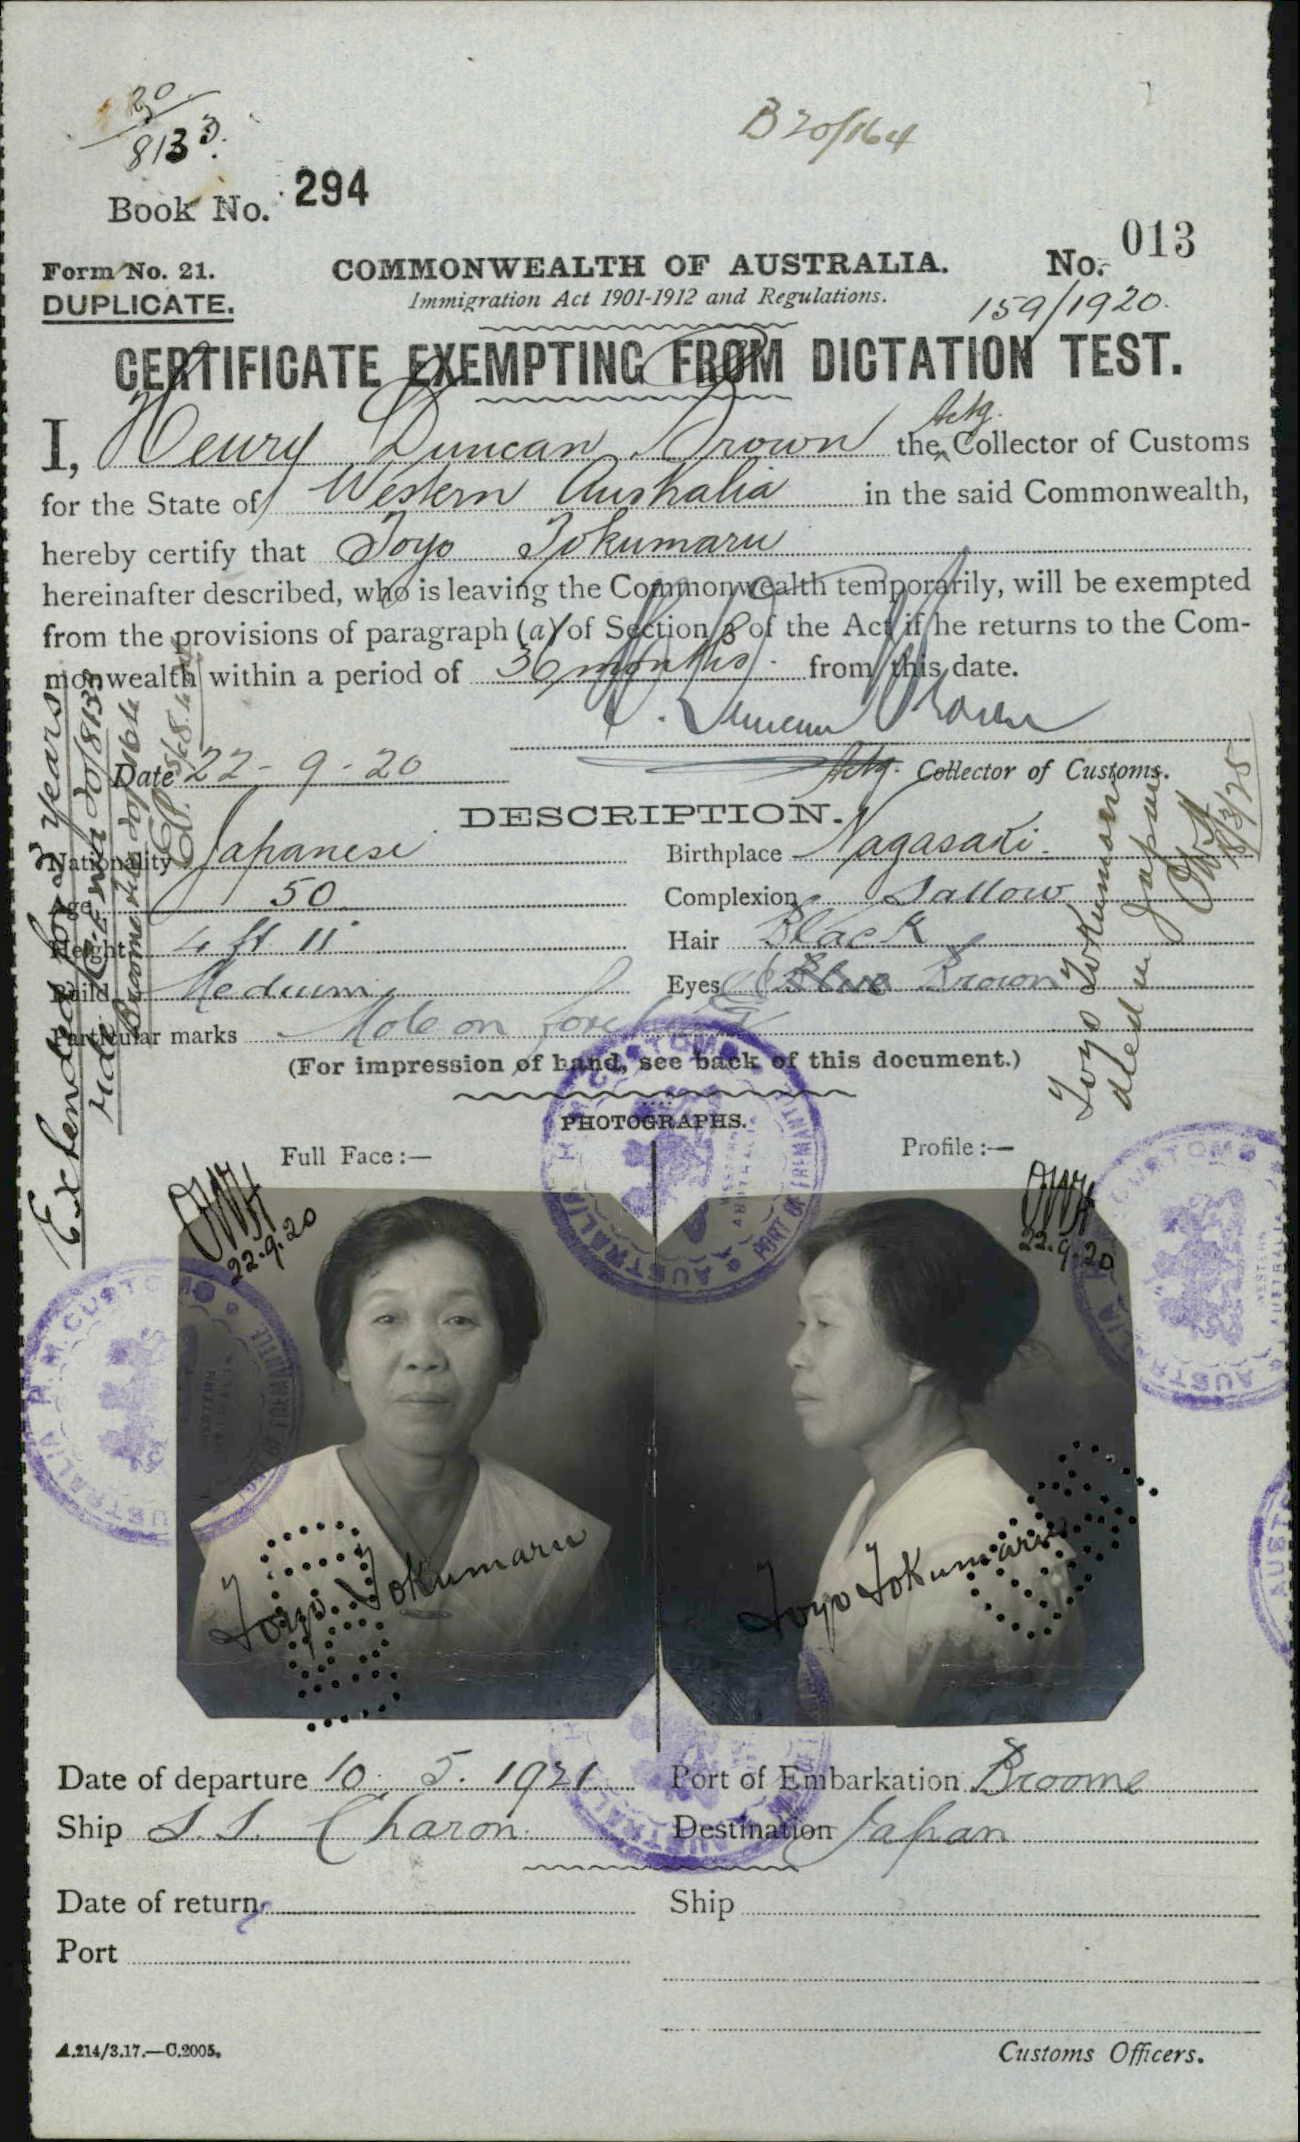 20
8133.
B20/164
Book No. 294
Form No. 21.
DUPLICATE.
COMMONWEALTH OF AUSTRALIA.
No. 013
Immigration Act 1901-1912 and Regulations.
159/1920.
CERTIFICATE EXEMPTING FROM DICTATION TEST.
I, Henry Duncan Brown the Actg. Collector of Customs
for the State of Western Australia in the said Commonwealth,
hereby certify that Toyo Tokumaru
hereinafter described, who is leaving the Commonwealth temporarily, will be exempted
from the provisions of paragraph (a) of Section 3 of the Act if he returns to the Com-
monwealth within a period of 36 months. from this date.
H. Duncan Brown
Date 22-9-20
Actg. Collector of Customs.
DESCRIPTION.
Nationality Japanese
Birthplace Nagasaki.
Age 50
Complexion Sallow
Height 4 ft 11"
Hair Black
Build Medium
Eyes Blue Brown
Particular marks Mole on
(For impression of hand, see back of this document.)
Extended for 3 years
Vide C. & E. Wa 20/8133
Broome 20/164
Toyo Tokumaru
died in Japan
OWH
8/3/25
PHOTOGRAPHS.
Full Face:—
Profile:—
OWH
22.9.20
OWH
22.9.20
H.M. CUSTOMS
WESTERN AUSTRALIA
PORT OF FREMANTLE
AUSTRALIA
Toyo Tokumaru
Toyo Tokumaru
Date of departure 10. 5. 1921
Port of Embarkation Broome
Ship S.S. Charon
Destination Japan
Date of return
Ship
Port
A.214/3.17.—C.2005.
Customs Officers.